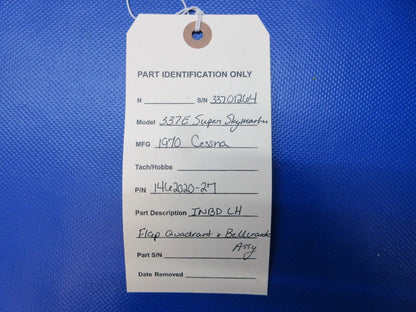 PART IDENTIFICATION ONLY
N S/N 33701264
Model 337E Super Skymaster
MFG 1970 Cessna
Tach/Hobbs
P/N 1462020-27
Part Description INBD LH
Flap Quadrant & Bellcrank
Assy
Part S/N
Date Removed